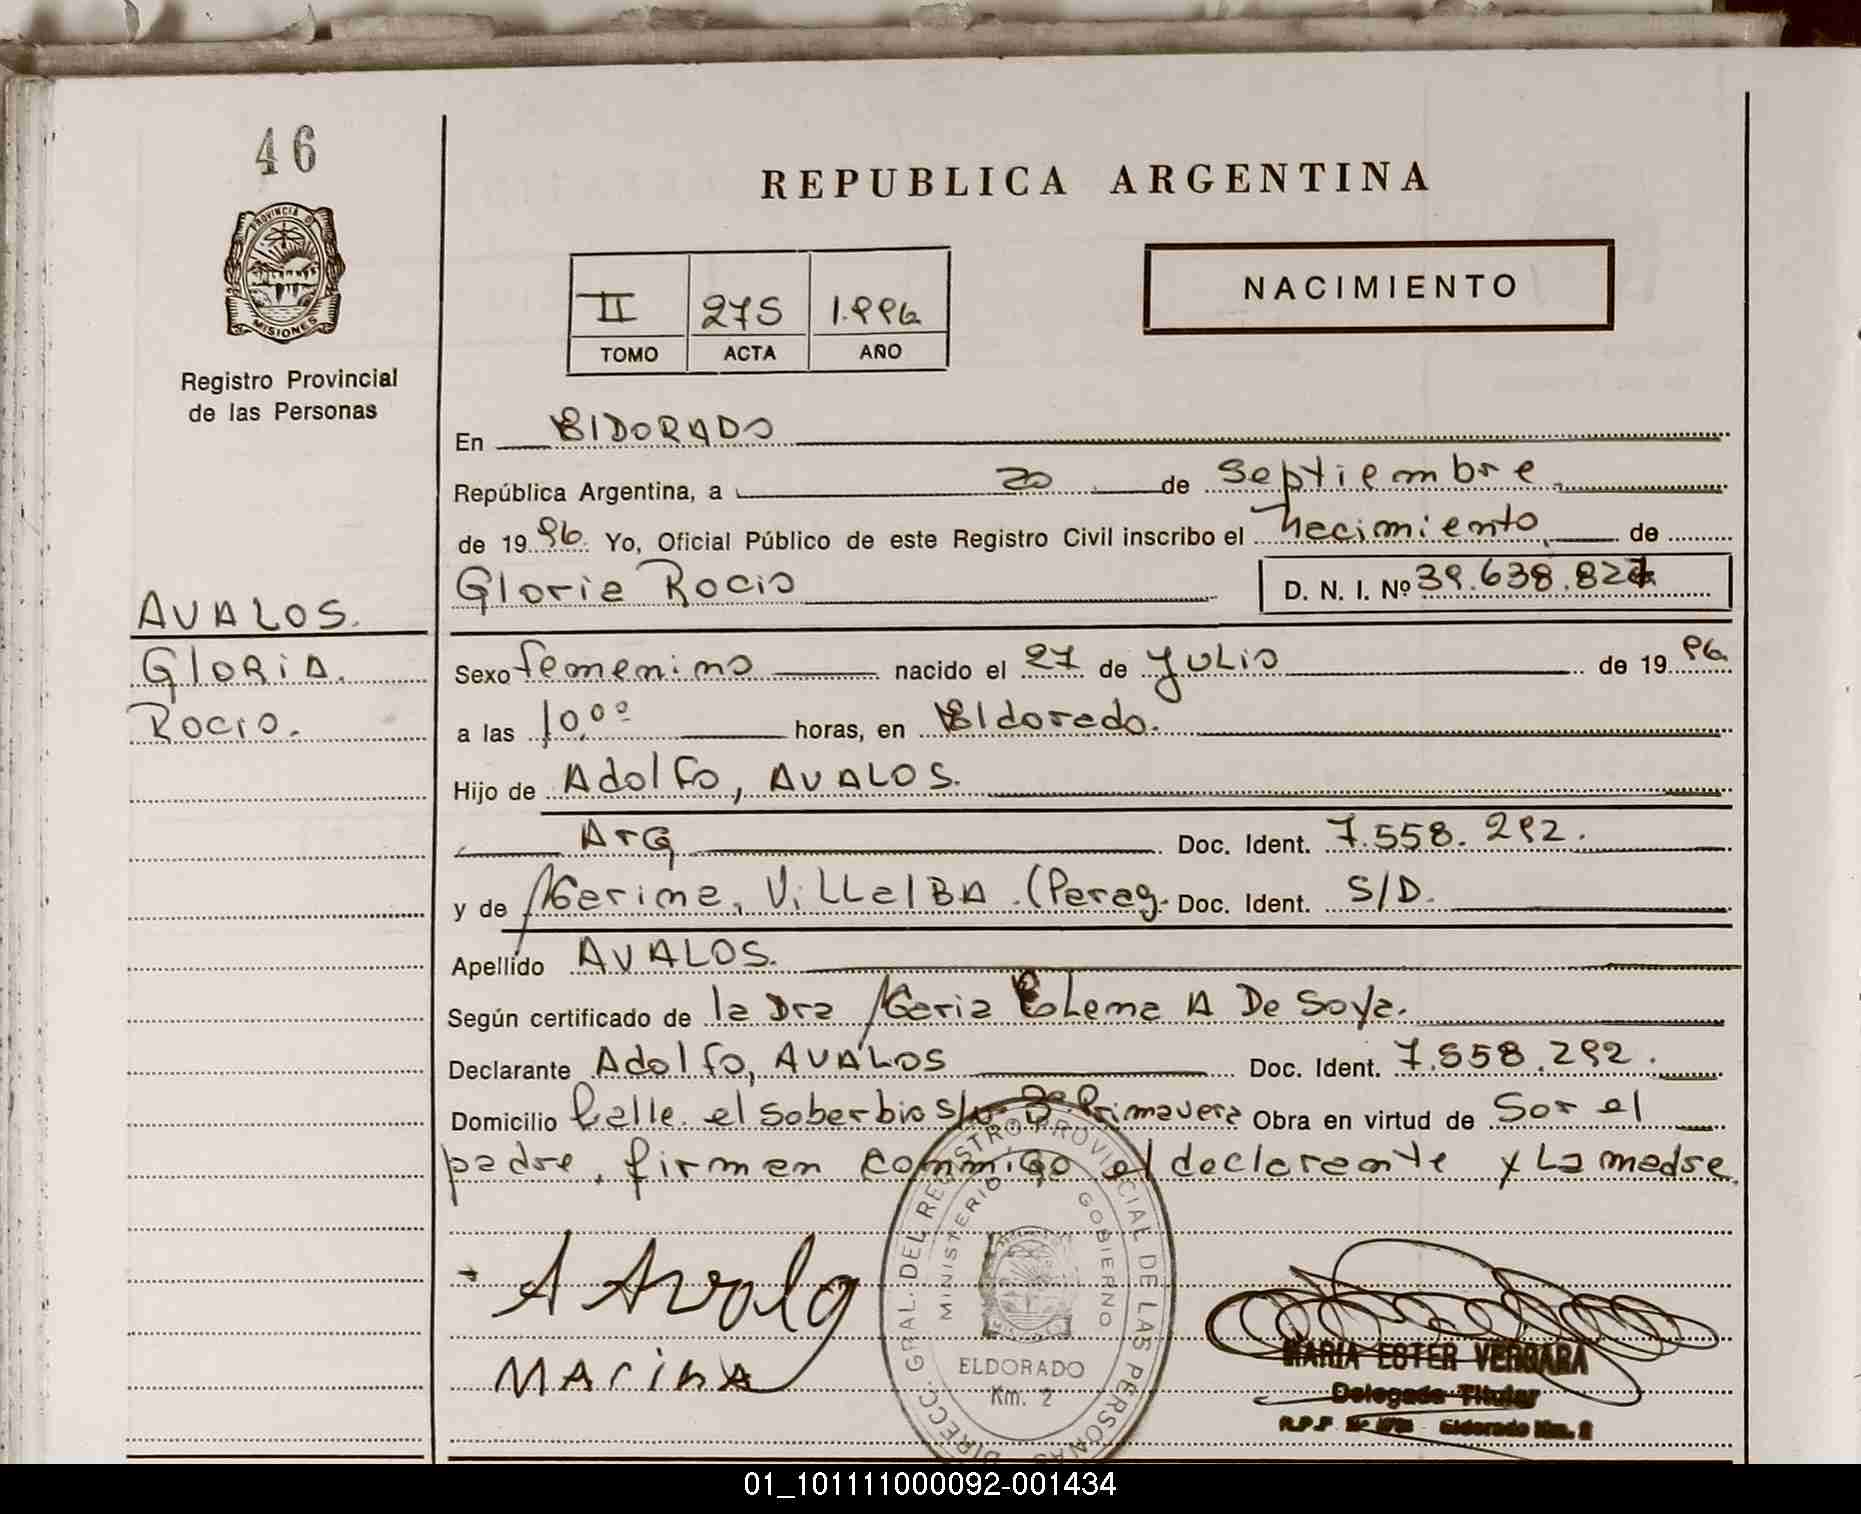 46
REPUBLICA ARGENTINA
PROVINCIA D
MISIONES
Registro Provincial
de las Personas
II 275 1.996
TOMO ACTA AÑO
NACIMIENTO
En ElDORADO
República Argentina, a 20 de septiembre
de 1996. Yo, Oficial Público de este Registro Civil inscribo el nacimiento de
Gloria Rocio D. N. I. Nº 39.638.827
AVALOS.
GloRiA.
Rocio.
Sexo femenino nacido el 27 de julio de 1996
a las 10,00 horas, en Eldorado.
Hijo de Adolfo, AVALOS.
ArG Doc. Ident. 7.558.292.
y de Marina, VillalBA (Parag. Doc. Ident. S/D.
Apellido AVALOS.
Según certificado de la Dra Maria A De Soya.
Declarante Adolfo, AVALOS Doc. Ident. 7.558.292.
Domicilio Calle el soberbio s/n Bº Primavera Obra en virtud de Sor el
padre, firman conmigo el declarante y La madre.
A Avalo
MARiNA
DIRECC. GRAL. DEL REGISTRO PROVINCIAL DE LAS PERSONAS
MINISTERIO GOBIERNO
ELDORADO
Km. 2
MARIA ESTER VERGARA
Delegada Titular
Eldorado Km. 2
01_101111000092-001434